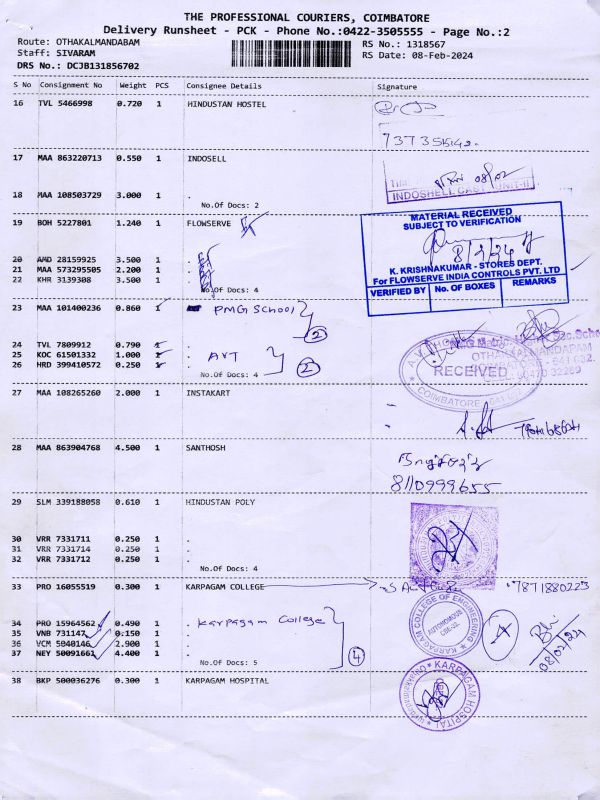 THE PROFESSIONAL COURIERS, COIMBATORE
Delivery Runsheet - PCK - Phone No.:0422-3505555 - Page No.:2
Route: OTHAKALMANDABAM
RS No.: 1318567
Staff: SIVARAM
RS Date: 08-Feb-2024
DRS No.: DCJB131856702
S No Consignment No Weight PCS Consignee Details Signature
16 TVL 5466998 0.720 1 HINDUSTAN HOSTEL
17 MAA 863220713 0.550 1 INDOSELL
08/02
INDOSHELL CAST UNIT-II
18 MAA 108503729 3.000 1 .
No.Of Docs: 2
19 BOH 5227801 1.240 1 FLOWSERVE
MATERIAL RECEIVED
SUBJECT TO VERIFICATION
8/2/24
K. KRISHNAKUMAR - STORES DEPT.
For FLOWSERVE INDIA CONTROLS PVT. LTD
VERIFIED BY No. OF BOXES REMARKS
20 AMD 28159925 3.500 1 .
21 MAA 573295505 2.200 1 .
22 KHR 3139308 3.500 1 .
No.Of Docs: 4
23 MAA 101400236 0.860 1 PMG School
2
24 TVL 7809912 0.790 1 .
25 KOC 61501332 1.000 1 . AVT
26 HRD 399410572 0.250 1 .
2
No.Of Docs: 4
OTHAKALMANDAPAM
RECEIVED
COIMBATORE 641 032
27 MAA 108265260 2.000 1 INSTAKART
28 MAA 863904768 4.500 1 SANTHOSH
8110999655
29 SLM 339188058 0.610 1 HINDUSTAN POLY
30 VRR 7331711 0.250 1 .
31 VRR 7331714 0.250 1 .
32 VRR 7331712 0.250 1 .
No.Of Docs: 4
33 PRO 16055519 0.300 1 KARPAGAM COLLEGE
7871880223
34 PRO 15964562 0.490 1 . Karpagam College
35 VNB 731147 0.150 1 .
36 VCM 5040146 2.900 1 .
37 NEY 50091661 4.400 1 .
4
No.Of Docs: 5
KARPAGAM COLLEGE OF ENGINEERING
AUTONOMOUS
CBE-32.
08/02/24
38 BKP 500036276 0.300 1 KARPAGAM HOSPITAL
KARPAGAM HOSPITAL